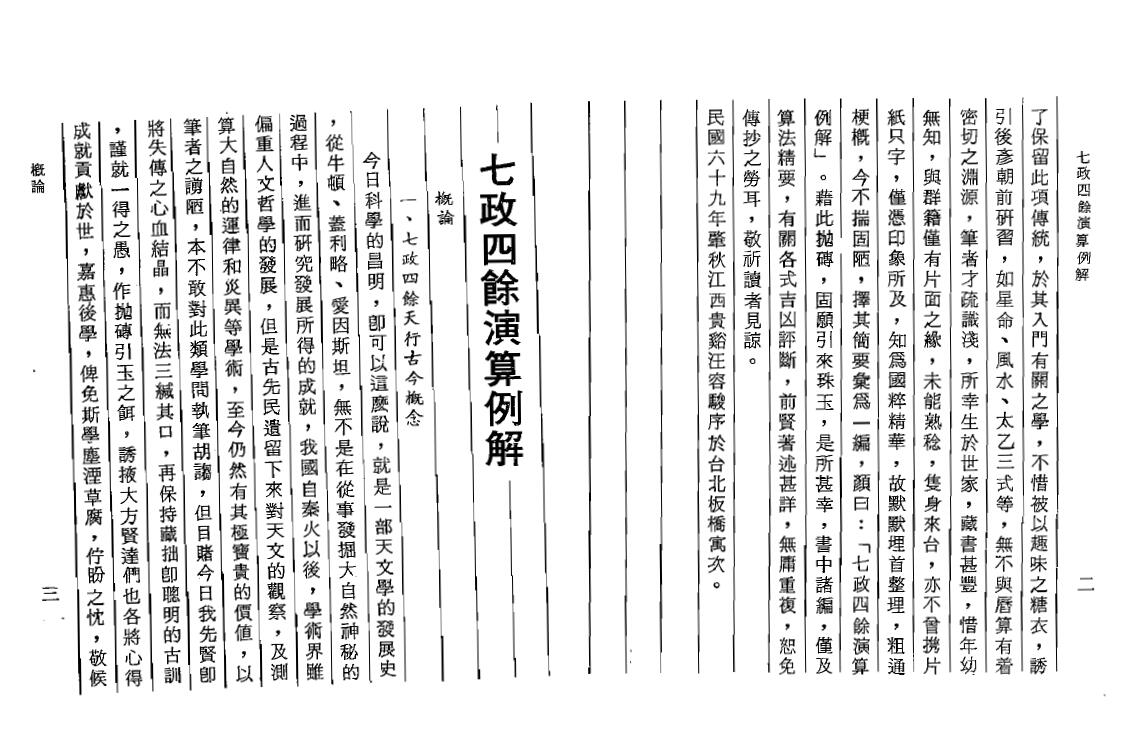 七政四餘演算例解
二
了保留此項傳統，於其入門有關之學，不惜被以趣味之糖衣，誘
引後彥朝前研習，如星命、風水、太乙三式等，無不與曆算有着
密切之淵源，筆者才疏識淺，所幸生於世家，藏書甚豐，惜年幼
無知，與群籍僅有片面之緣，未能熟稔，隻身來台，亦不曾携片
紙只字，僅憑印象所及，知爲國粹精華，故默默埋首整理，粗通
梗概，今不揣固陋，擇其簡要彙爲一編，顏曰：「七政四餘演算
例解」。藉此拋磚，固願引來珠玉，是所甚幸，書中諸編，僅及
算法精要，有關各式吉凶評斷，前賢著述甚詳，無庸重複，恕免
傳抄之勞耳，敬祈讀者見諒。
民國六十九年肇秋江西貴谿汪容駿序於台北板橋寓次。
七政四餘演算例解
概論
一、七政四餘天行古今概念
今日科學的昌明，卽可以這麽說，就是一部天文學的發展史
，從牛頓、蓋利略、愛因斯坦，無不是在從事發掘大自然神秘的
過程中，進而研究發展所得的成就，我國自秦火以後，學術界雖
偏重人文哲學的發展，但是古先民遺留下來對天文的觀察，及測
算大自然的運律和災異等學術，至今仍然有其極寶貴的價值，以
筆者之謭陋，本不敢對此類學問執筆胡謅，但目賭今日我先賢卽
將失傳之心血結晶，而無法三緘其口，再保持藏拙卽聰明的古訓
，謹就一得之愚，作拋磚引玉之餌，誘掖大方賢達們也各將心得
成就貢獻於世，嘉惠後學，俾免斯學塵湮草腐，佇盼之忱，敬候
概論
三